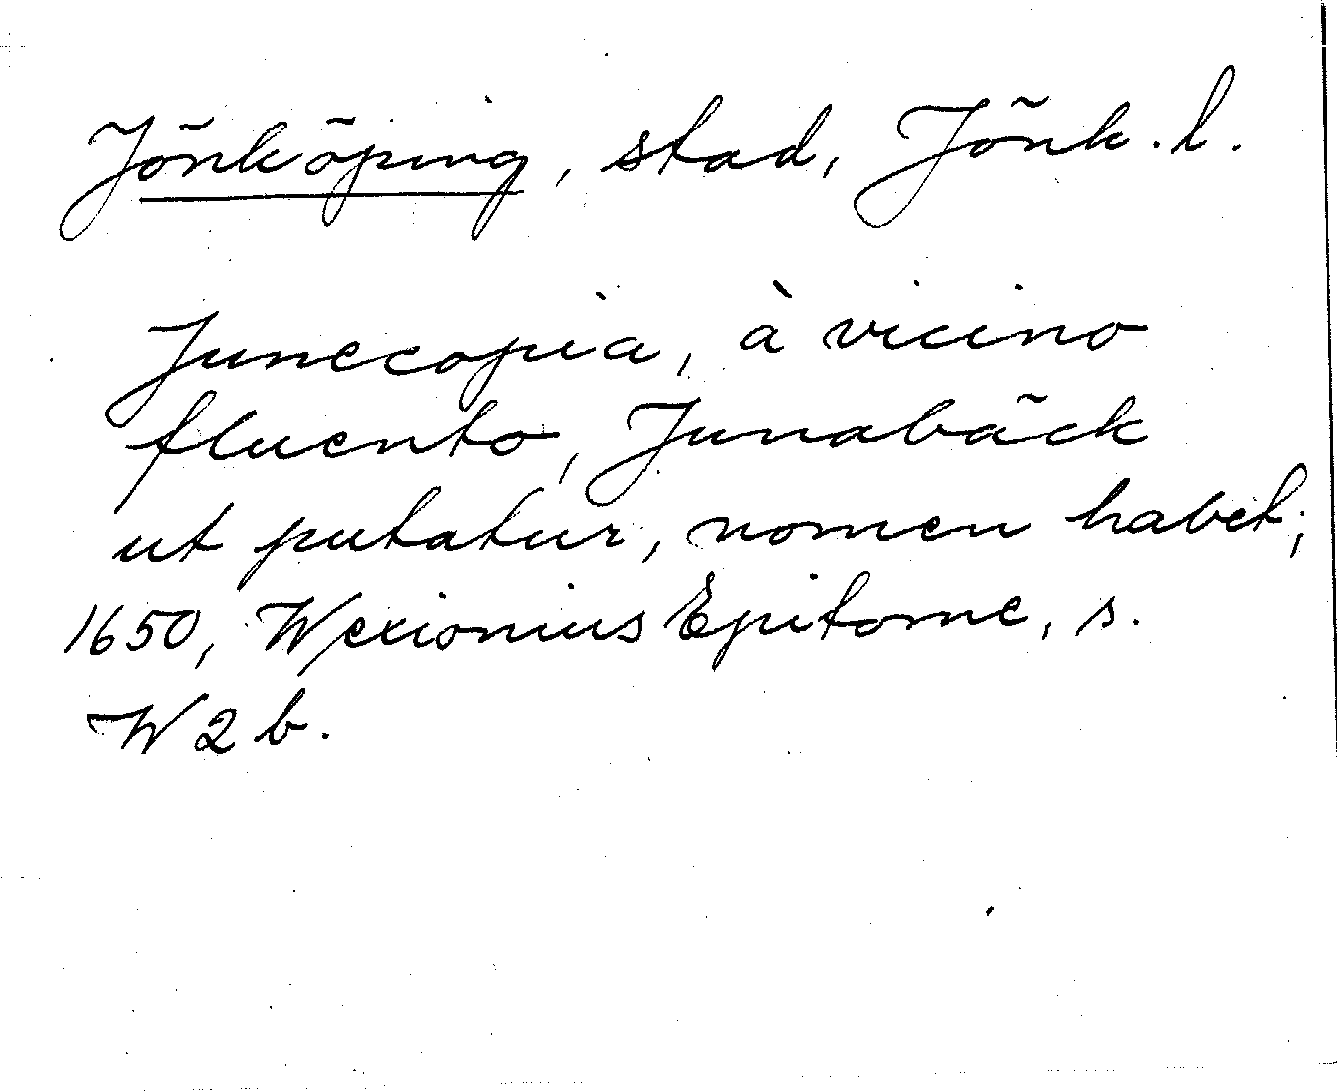 Jönköping, stad, Jönk. l.
Junecopia, à vicino
fluento, Junabäck
ut putatur, nomen habet;
1650, Wexionius Epitome, s.
W 2 b.